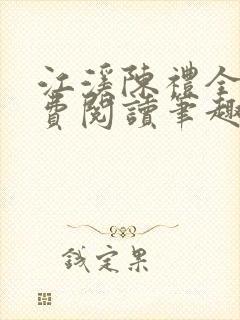 江溪陳禮全
費閱讀筆趣
錢定果